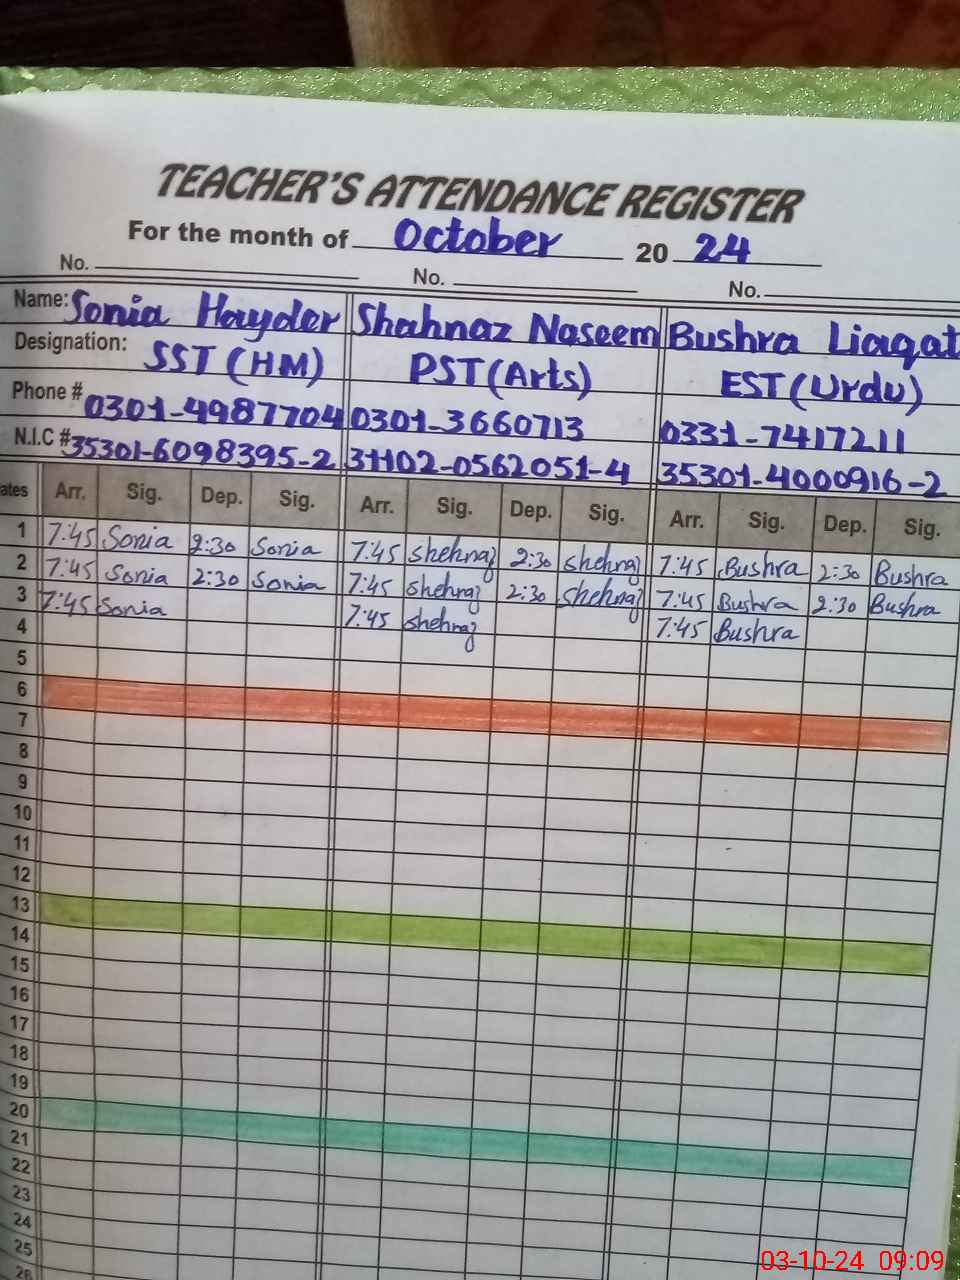 TEACHER'S ATTENDANCE REGISTER
For the month of October 20 24
No. No. No.
Name: Sonia Hayder Shahnaz Naseem Bushra Liaqat
Designation: SST (HM) PST (Arts) EST (Urdu)
Phone # 0301-4987704 0301-3660713 0331-7417211
N.I.C # 35301-6098395-2 31102-0562051-4 35301-4000916-2
ates Arr. Sig. Dep. Sig. Arr. Sig. Dep. Sig. Arr. Sig. Dep. Sig.
1 7:45 Sonia 2:30 Sonia 7:45 shehnaz 2:30 shehnaz 7:45 Bushra 2:30 Bushra
2 7:45 Sonia 2:30 Sonia 7:45 shehnaz 2:30 shehnaz 7:45 Bushra 2:30 Bushra
3 7:45 Sonia 7:45 shehnaz 7:45 Bushra
4
5
6
7
8
9
10
11
12
13
14
15
16
17
18
19
20
21
22
23
24
25
26
03-10-24 09:09